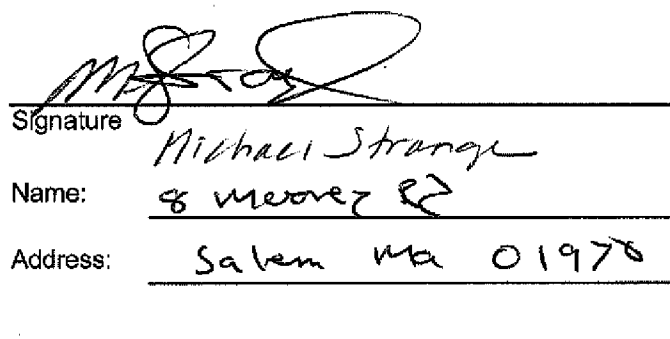 Signature
Michael Strange
Name: 8 Moores Rd
Address: Salem Ma 01970